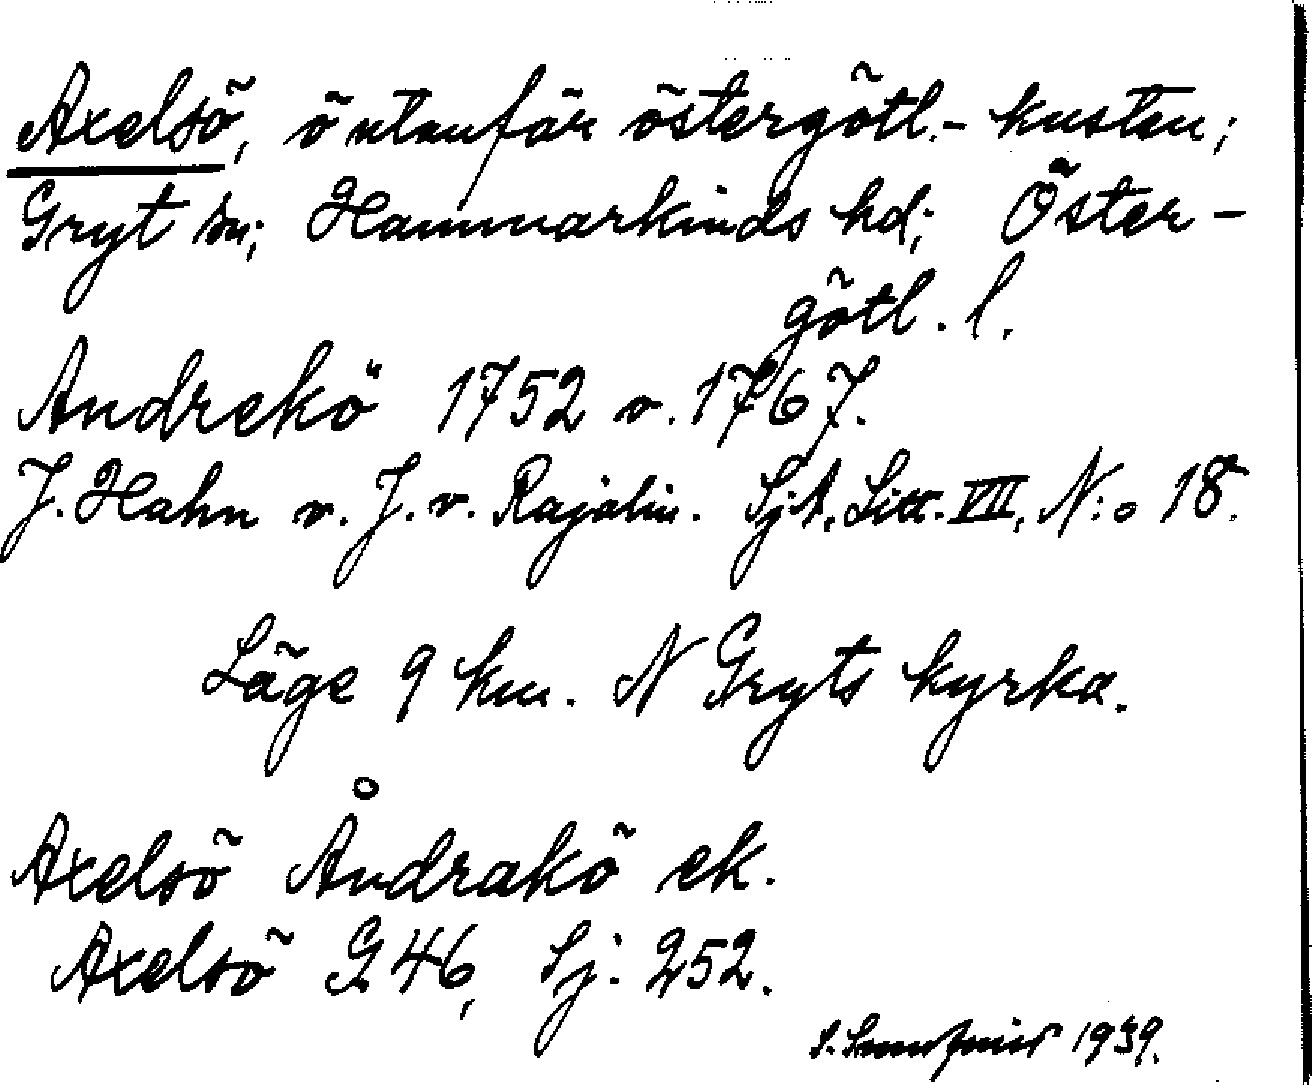 Axelsö, ö utanför östergötl.- kusten;
Gryt sn; Hammarkinds hd; Öster-
götl. l.
Andrekö 1752 o. 1767.
J. Hahn o. J. v. Rajalin. SjA, Litt. VII, N:o 18.
Läge 9 km. N Gryts kyrka.
Axelsö Åndrakö ek.
Axelsö G 46, Sj: 252.
1939.